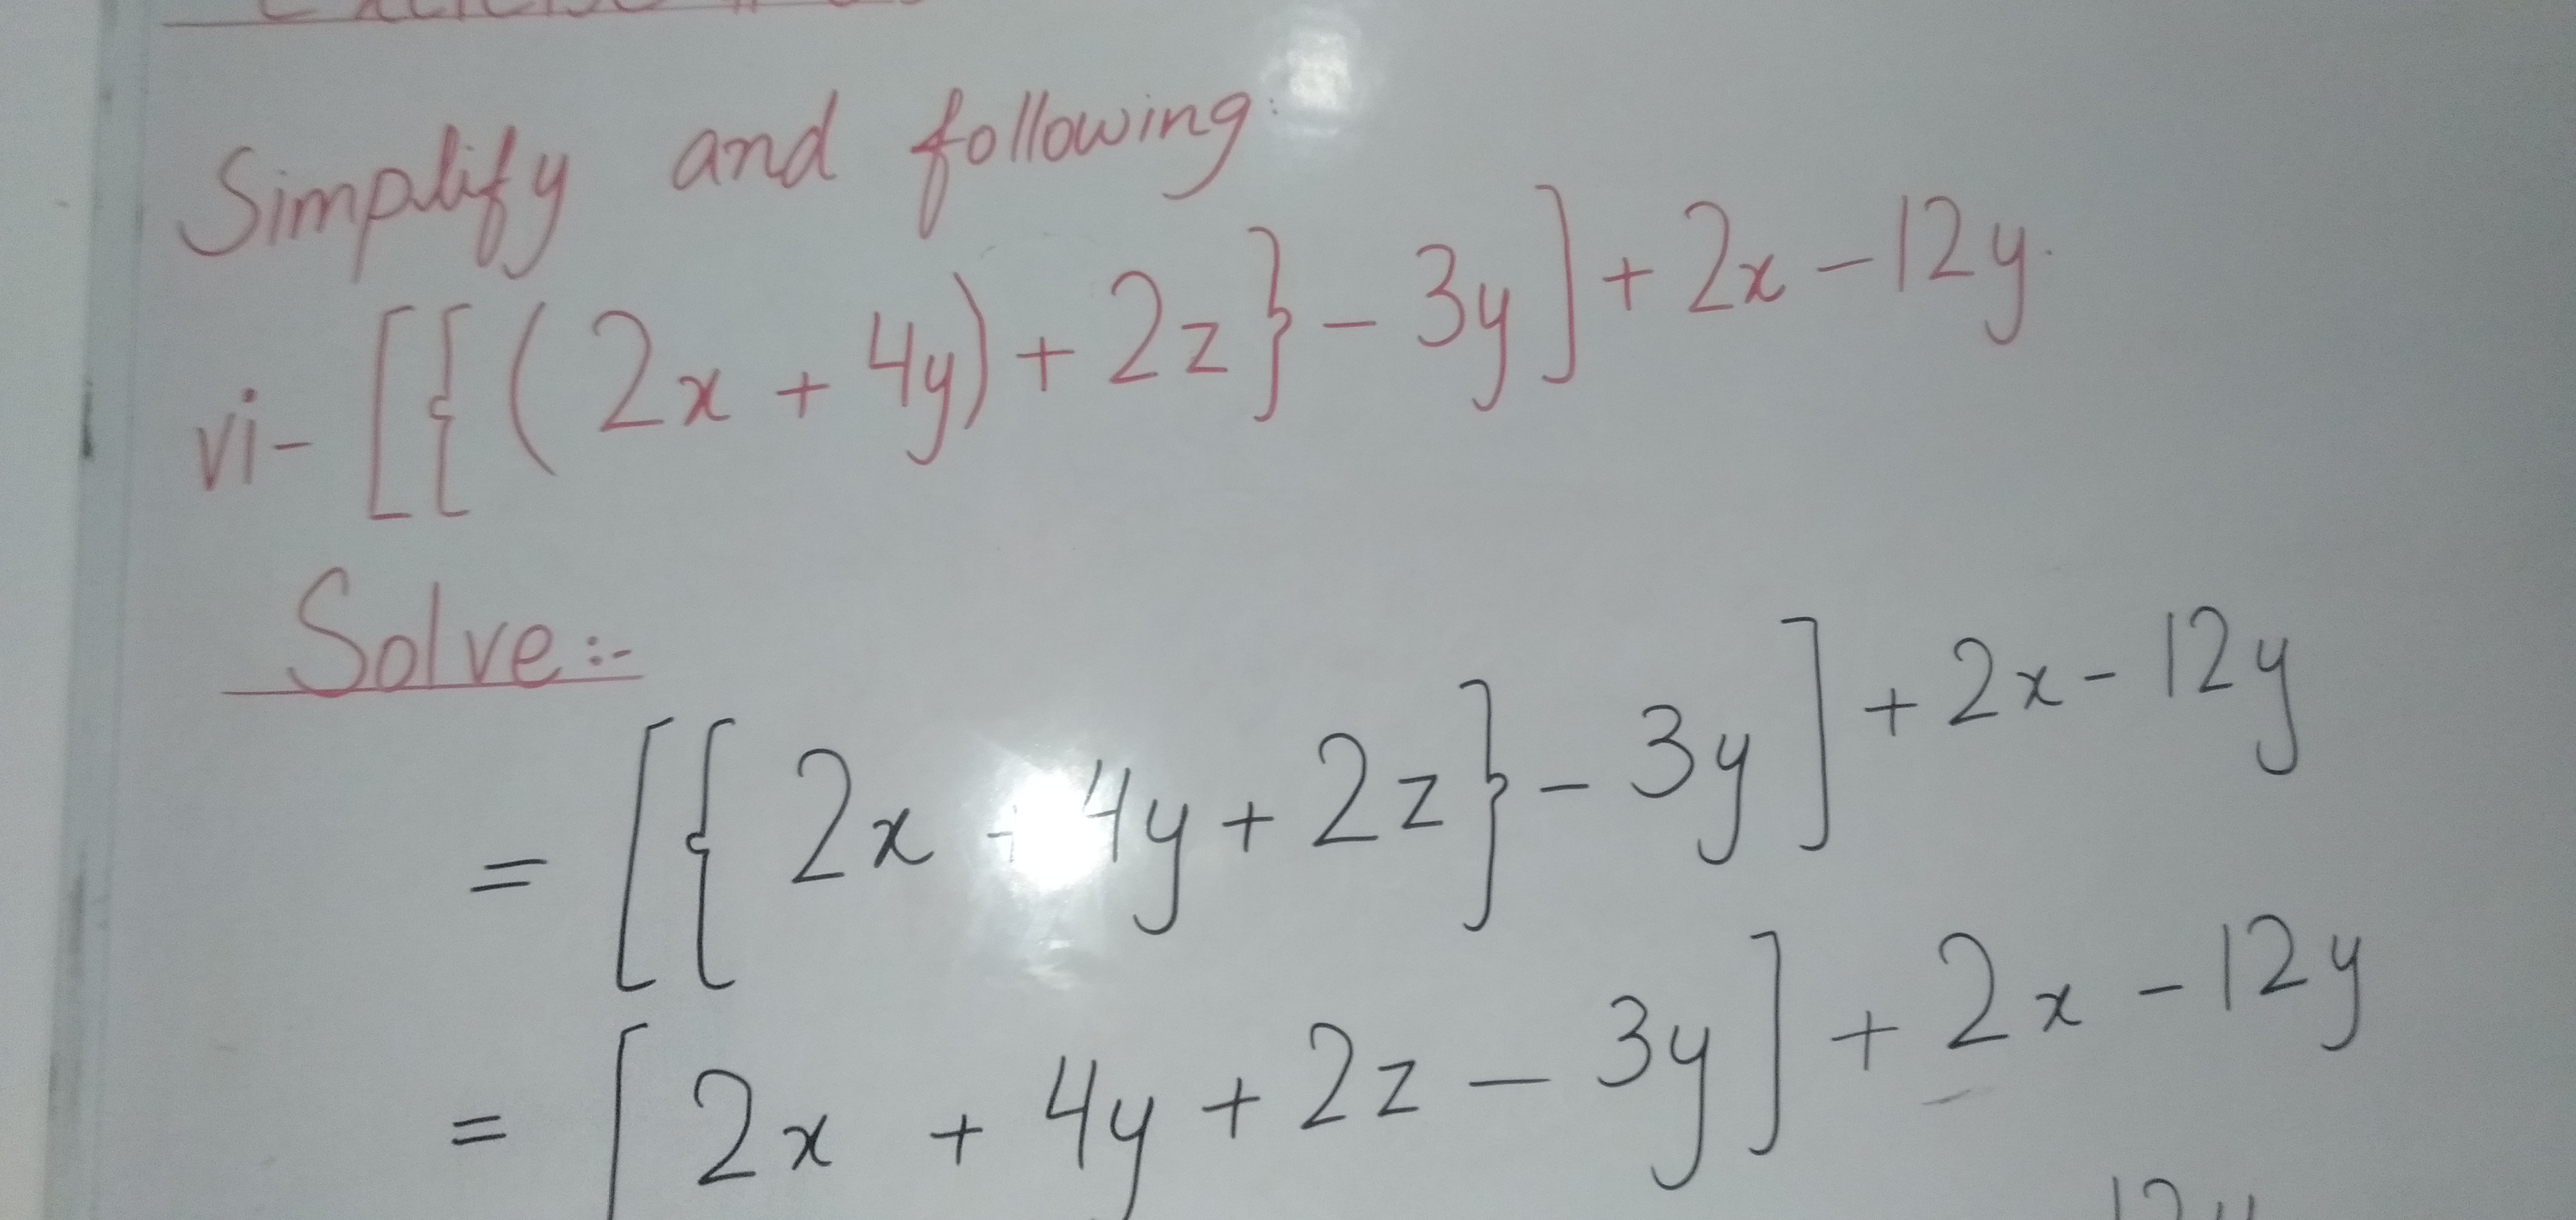 Simplify and following:
vi- [{(2x + 4y) + 2z} - 3y] + 2x - 12y.
Solve:-
= [{2x + 4y + 2z} - 3y] + 2x - 12y
= [2x + 4y + 2z - 3y] + 2x - 12y
12y